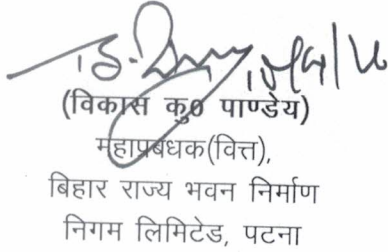 (विकास कु0 पाण्डेय)
महाप्रबंधक(वित्त),
बिहार राज्य भवन निर्माण
निगम लिमिटेड, पटना